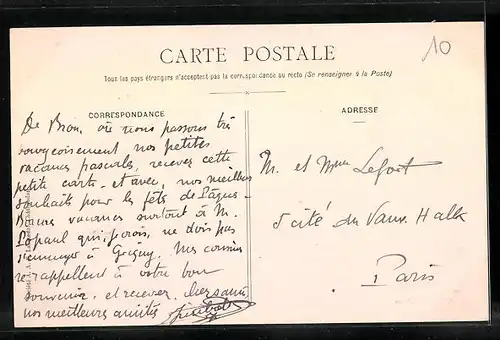 CARTE POSTALE
10
Tous les pays étrangers n'acceptent pas la correspondance au recto (Se renseigner à la Poste)
CORRESPONDANCE
De Bron, où nous passons très
bourgeoisement nos petites
vacances pascales, recevez cette
petite carte et avec, nos meilleurs
souhaits pour les fêts de Pâques
Bonnes vacances surtout à M.
Papaul qui, je crois, ne dois pas
s'ennuyer à Grigny. Mes cousins
se rappellent à votre bon
souvenir, et recevez, chers amis,
nos meilleures amitiés
ADRESSE
M. et Mme Lefort
5 cité du Vaux Halle
Paris